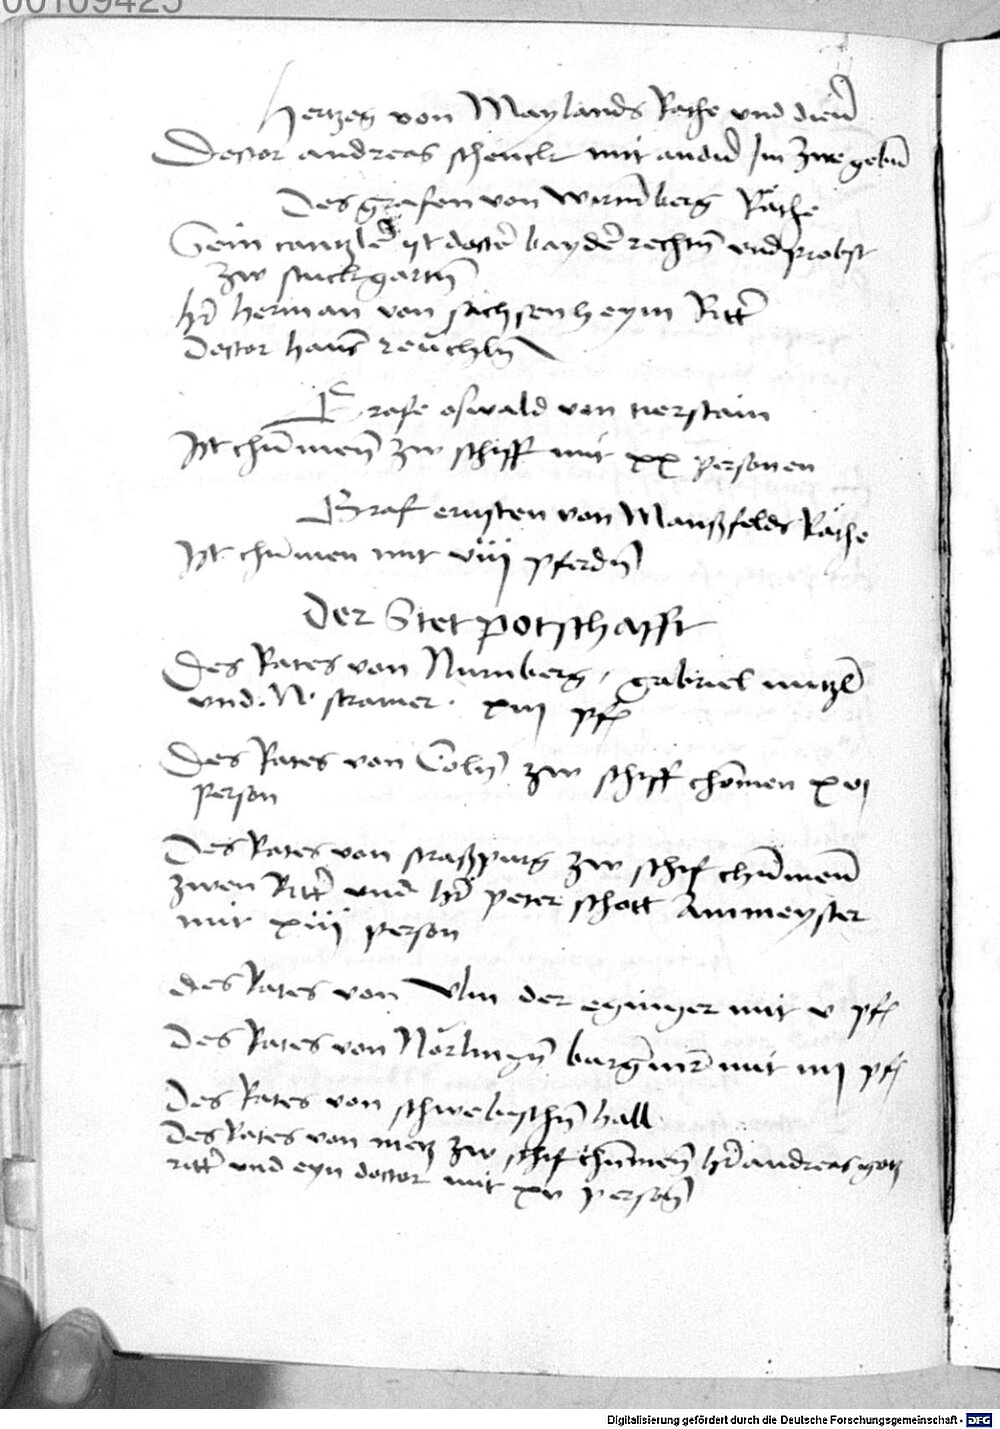 00109425
Hertzog von Maylands Rathe und diener
Doctor andreas schenck mit andern Im zwe gebn
Des grafen von wirmberg Räthe
Sein cantzler ist doctor bayder rechtn und probst
zw stuckgartn
her herman von sachsenheym Ritter
Doctor hans reuchlin
Grafe oswald von tierstain
Ist chummen zw schiff mit xx personen
Graf ernsten von Manßfelds Räthe
Ist chummen mit viij pferdn
Der Stet potschafft
Des Rates von Nurnberg, gabriel nutzel
und. N. stromer. xiij pf
Des Rates von Coln zw schiff chomen xvj
person
Des Rates von straßpurg zw schif chummen
zwen Ritter und her peter schott Ammeyster
mit xiiij person
des Rates von Ulm der eginger mit v pf
Des Rates von Norlingn burgermr mit iiij pf
Des Rates von schwebischn hall
Des Rates von metz zw schif chummen her andreas gotz
ritter und eyn doctor mit xv person
Digitalisierung gefördert durch die Deutsche Forschungsgemeinschaft - DFG